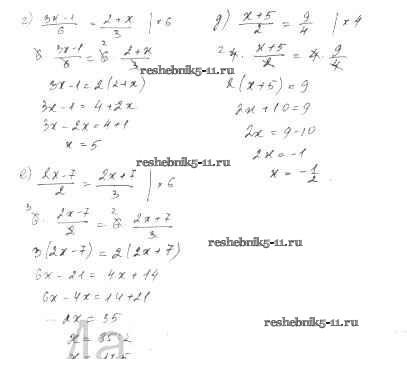 г) (3x-1)/6 = (2+x)/3 | ×6
6 · (3x-1)/6 = 6 · (2+x)/3
3x-1 = 2(2+x)
3x-1 = 4+2x
3x-2x = 4+1
x = 5
е) (2x-7)/2 = (2x+7)/3 | ×6
3 6 · (2x-7)/2 = 2 6 · (2x+7)/3
3(2x-7) = 2(2x+7)
6x-21 = 4x+14
6x-4x = 14+21
2x = 35
д) (x+5)/2 = 9/4 | ×4
2 4 · (x+5)/2 = 4 · 9/4
2(x+5) = 9
2x+10 = 9
2x = 9-10
2x = -1
x = -1/2.
reshebnik5-11.ru
reshebnik5-11.ru
reshebnik5-11.ru
reshebnik5-11.ru